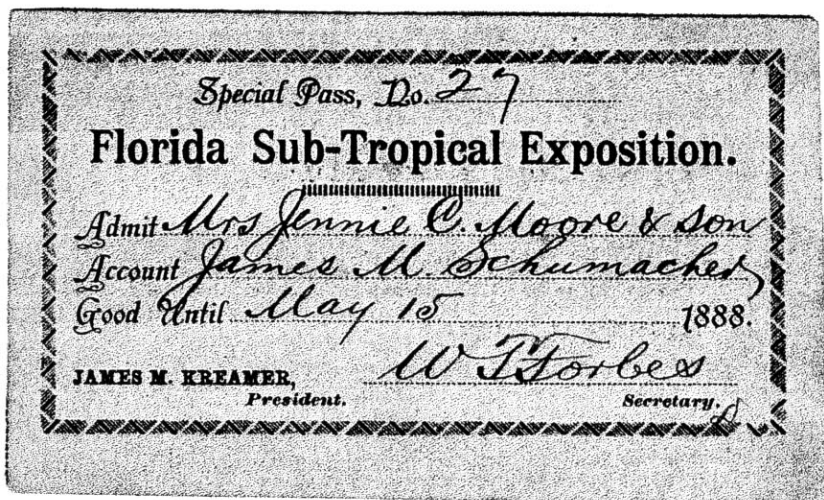 Special Pass, No. 27
Florida Sub-Tropical Exposition.
Admit Mrs Jennie C. Moore & son
Account James M. Schumacher
Good Until May 15 1888.
W T Forbes
JAMES M. KREAMER,
President. Secretary.